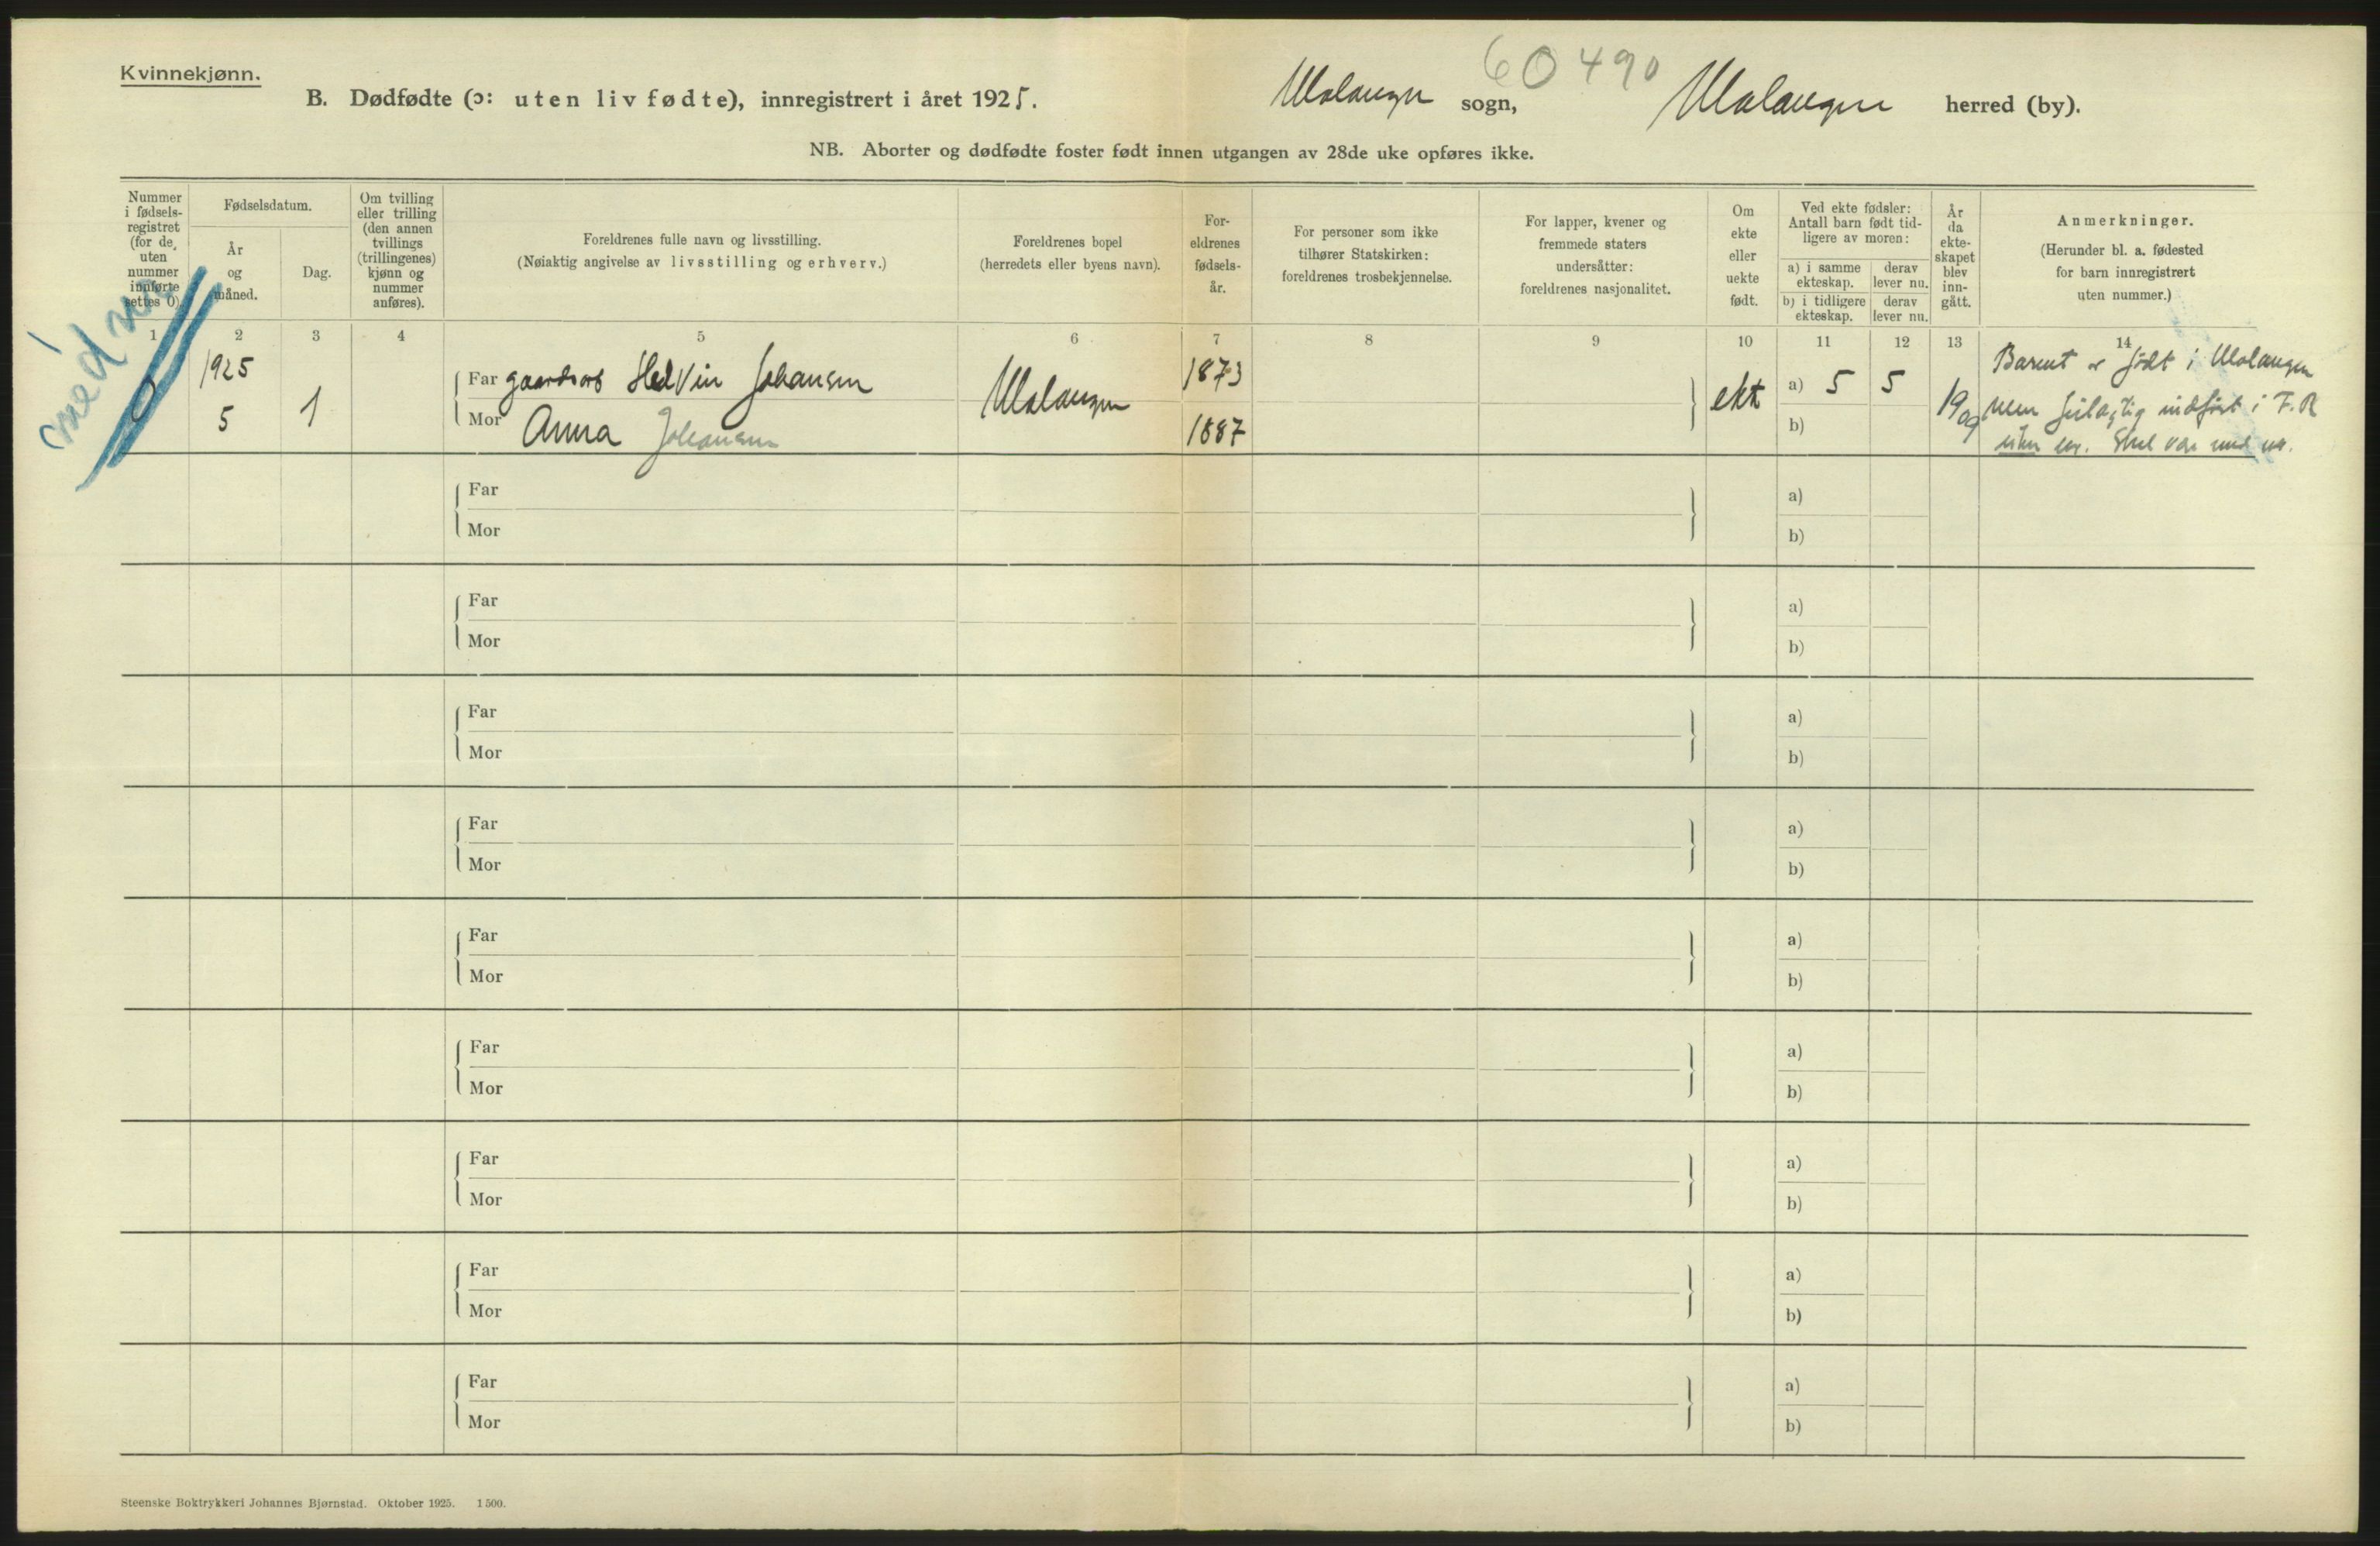 Kvinnekjønn.
60490
B. Dødfødte (ɔ: uten liv fødte), innregistrert i året 1925. Malangen sogn, Malangen herred (by).
NB. Aborter og dødfødte foster født innen utgangen av 28de uke opføres ikke.
Nummer i fødsels-registret (for de uten nummer innførte settes 0)
Fødselsdatum.
År og måned.
Dag.
Om tvilling eller trilling (den annen tvillings (trillingenes) kjønn og nummer anføres).
Foreldrenes fulle navn og livsstilling.
(Nøiaktig angivelse av livsstilling og erhverv.)
Foreldrenes bopel
(herredets eller byens navn).
For-eldrenes fødsels-år.
For personer som ikke tilhører Statskirken: foreldrenes trosbekjennelse.
For lapper, kvener og fremmede staters undersåtter: foreldrenes nasjonalitet.
Om ekte eller uekte født.
Ved ekte fødsler: Antall barn født tid-ligere av moren:
a) i samme ekteskap.
derav lever nu.
b) i tidligere ekteskap.
derav lever nu.
År da ekte-skapet blev inn-gått.
Anmerkninger.
(Herunder bl. a. fødested for barn innregistrert uten nummer.)
1 2 3 4 5 6 7 8 9 10 11 12 13 14
med nr
0
1925
5 1
Far gaardsarb Hedvin Johansen
Mor Anna Johansen
Malangen
1873
1887
ekt
a) 5 5
b)
1909
Barnet er født i Malangen
men feilagtig indført i F.R
uten nr. Skal være med nr.
Far a)
Mor b)
Far a)
Mor b)
Far a)
Mor b)
Far a)
Mor b)
Far a)
Mor b)
Far a)
Mor b)
Far a)
Mor b)
Far a)
Mor b)
Far a)
Mor b)
Steenske Boktrykkeri Johannes Bjørnstad. Oktober 1925. 1500.